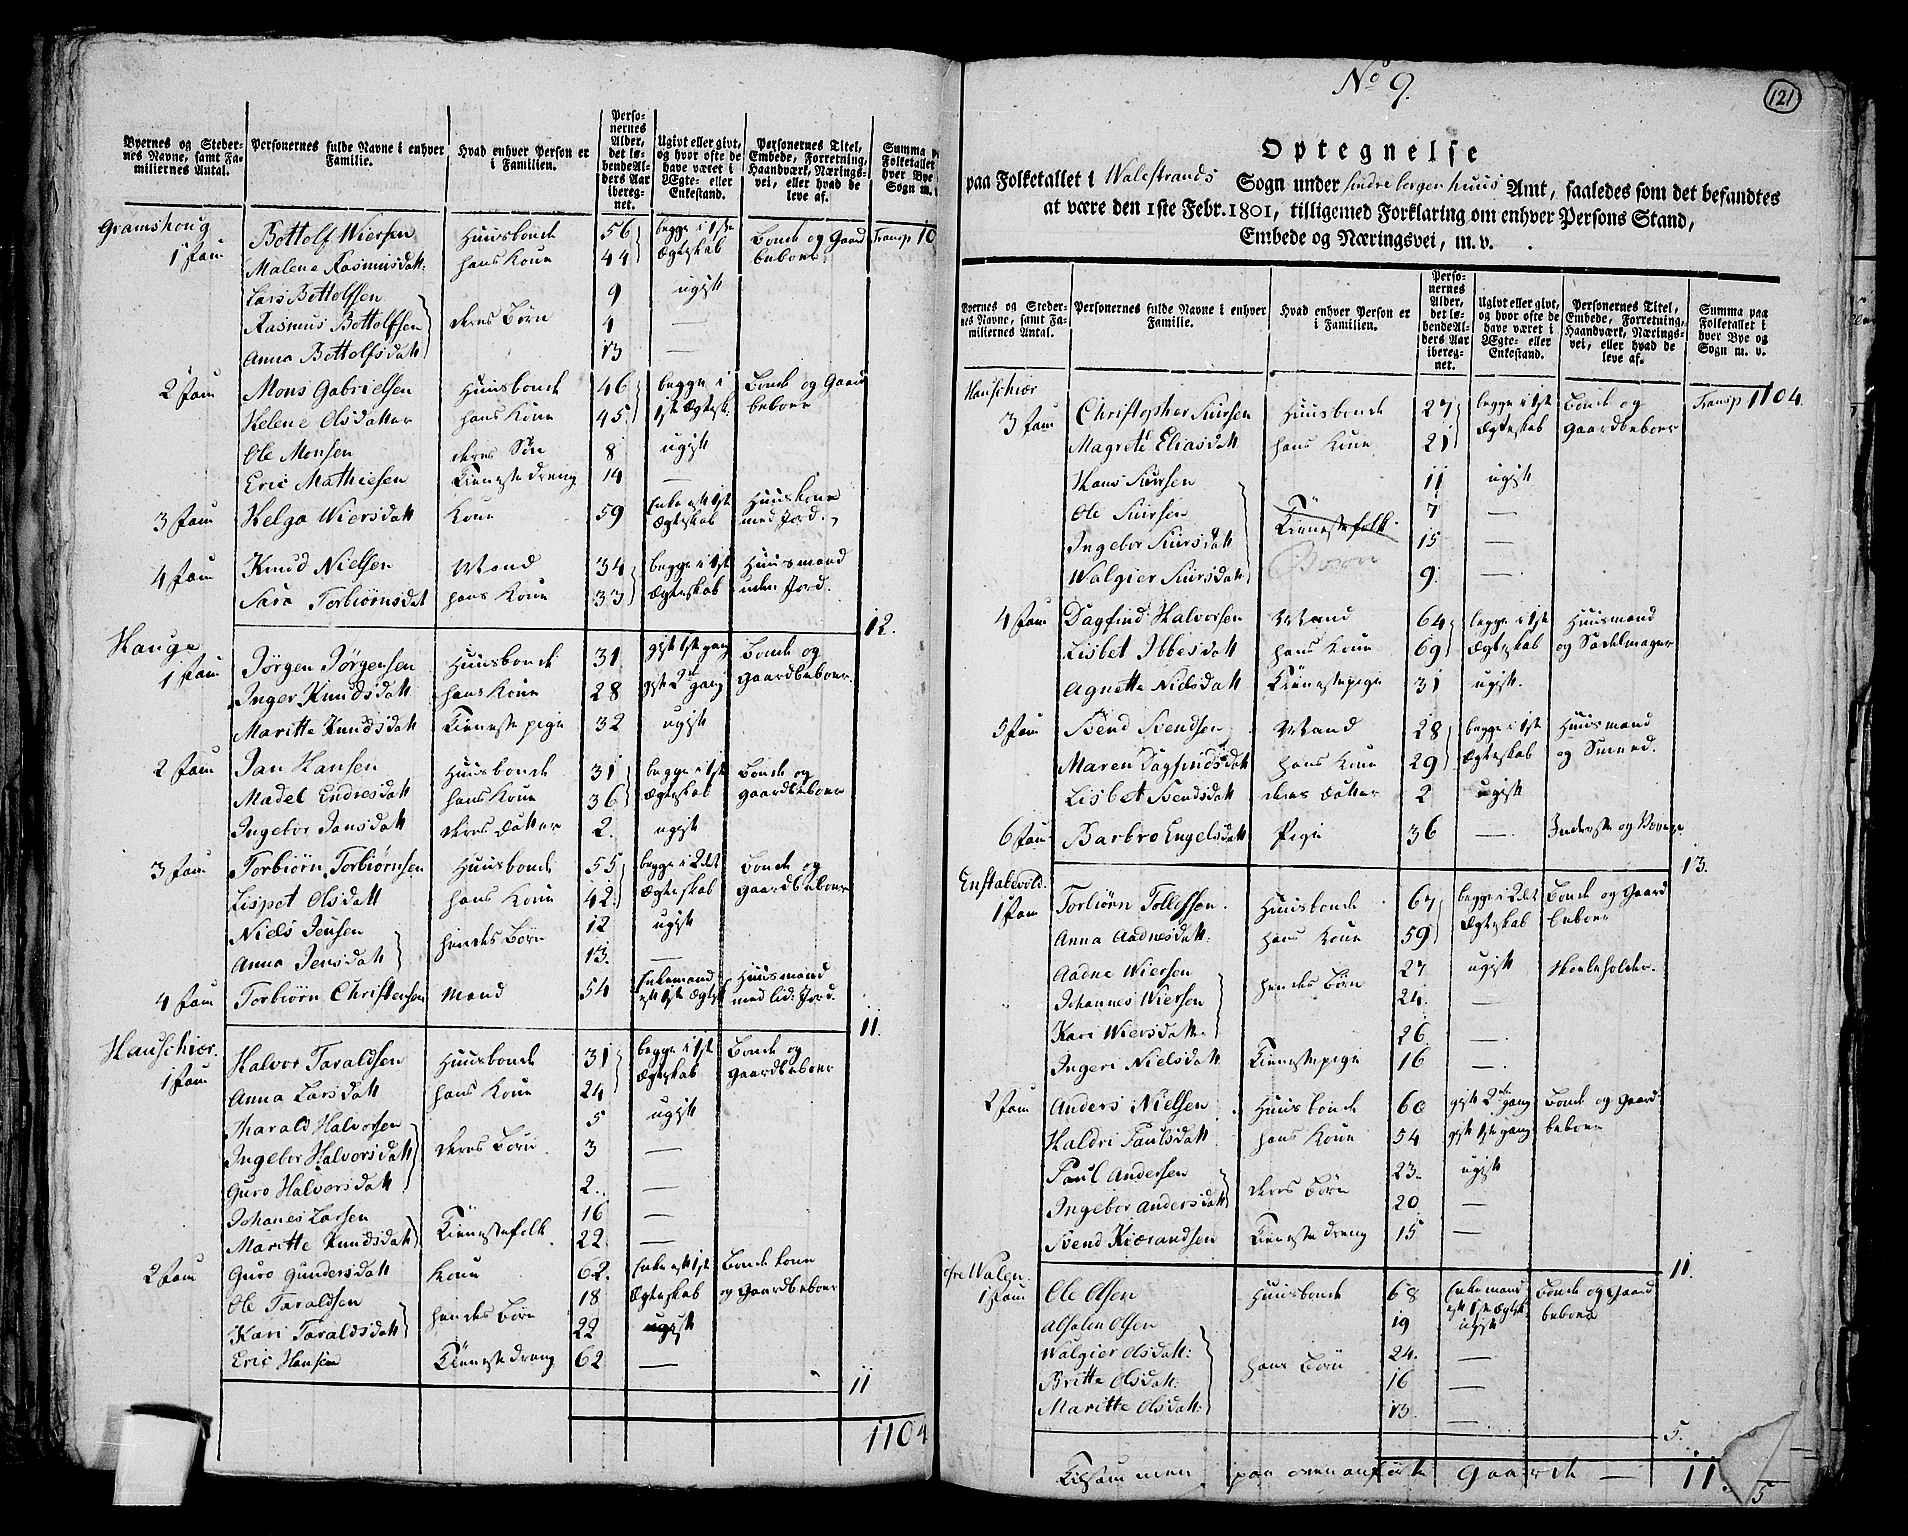 Byernes og Stedernes Navne, samt Familiernes Antal.
Personernes fulde Navne i enhver Familie.
Hvad enhver Person er i Familien.
Personernes Alder, det løbende Alders Aar iberegnet.
Ugivt eller givt, og hvor ofte de have været i Ægte- eller Enkestand.
Personernes Titel, Embede, Forretning, Haandværk, Næringsvei, eller hvad de leve af.
Gramshoug Transp 10
1 Fam Bottolf Wiersen Huusbonde 56 begge i 1ste Bonde og Gaard
Malene Rasmusdatt: hans Kone 44 Ægteskab beboer
Lars Bottolfsen 9 ugift
Rasmus Bottolfsen deres Børn 4 —
Anna Bottolfsdatt 13 —
2 Fam Mons Gabrielsen Huusbonde 46 begge i Bonde og Gaard
Helene Olsdatter hans Kone 45 1ste Ægtesk. beboer
Ole Monsen deres Søn 8 ugift
Eric Mathiesen Tieneste dreng 14 —
3 Fam Helga Wiersdatt Kone 59 Enke eft 1ste Huuskone
Ægteskab med Jord.
4 Fam Knud Nielsen Mand 34 begge i 1ste Huusmand
Sara Torbiørnsdat hans Kone 33 Ægteskab uden Jord.
12.
Hauge
1 Fam Jørgen Jørgensen Huusbonde 31 gift 1ste gang Bonde og
Inger Knudsdatt hans Kone 28 gift 2 gang Gaardbeboer.
Maritte Knudsdatt Tieneste pige 32 ugift
2 Fam Jan Hansen Huusbonde 31 begge i 1ste Bonde og
Madel Endresdatt hans Kone 36 Ægteskab gaardbeboer
Ingebor Jansdatt deres Datter 2. ugift
3 Fam Torbiørn Torbiørnsen Huusbonde 55 begge i 2det Bonde og
Lispet Olsdatt hans Kone 42 Ægteskab gaardbeboer
Niels Jensen 12 ugift
Anna Jensdatt hendes Børn 13. —
4 Fam Torbiørn Christensen Mand 54 Enkemand Huusmand
eft 1ste Ægtesk med lid: Jord.
11.
Hauschier.
1 Fam Halvor Taraldsen Huusbonde 31 begge i 1ste Bonde og
Anna Larsdatt hans Kone 24 Ægteskab Gaardbeboer
Tharald Halvorsen 5 ugift
Ingebor Halvorsdatt deres Børn 3 —
Guro Halvorsdatt 2. —
Johanes Larsen 16 —
Maritte Knudsdatt Tienestefolk 22 —
2 Fam Guro Gundersdatt Kone 62. Enke eft 1ste Bonde kone
Ole Taraldsen 18 Ægteskab og Gaardbeboer
Kari Taraldsdatt hendes Børn 22 ugift
Eric Hansen Tieneste dreng 62 —
11
1104
No 9.
121
Optegnelse
paa Folketallet i Walestrands Sogn under Søndre Bergenhuus Amt, saaledes som det befandtes
at være den 1ste Febr. 1801, tilligemed Forklaring om enhver Persons Stand,
Embede og Næringsvei, m. v.
Byernes og Stedernes Navne, samt Familiernes Antal.
Personernes fulde Navne i enhver Familie.
Hvad enhver Person er i Familien.
Personernes Alder, det løbende Alders Aar iberegnet.
Ugivt eller givt, og hvor ofte de have været i Ægte- eller Enkestand.
Personernes Titel, Embede, Forretning, Haandværk, Næringsvei, eller hvad de leve af.
Summa paa Folketallet i hver Bye og Sogn m. v.
Hauschier Transp 1104.
3 Fam Christopher Siursen Huusbonde 27 begge i 1ste Bonde og
Magrete Eliasdatt hans Kone 21 Ægteskab Gaardbeboer
Hans Siursen 11 ugift
Ole Siursen 7 —
Ingebor Siursdatt Tienestefolk 15 —
Walgier Siursdatt Børn 9. —
4 Fam Dagfind Halvorsen Mand 64 begge i 1ste Huusmand
Lisbet Ibbesdatt hans Kone 69 Ægteskab og Sadelmager
Agnette Nielsdatt Tienestepige 31 ugift.
5 Fam Svend Svendsen Mand 28 begge i 1ste Huusmand
Maren Dagfindsdatt hans Kone 29 Ægteskab og Smed.
Lisbet Svendsdatt deres Datter 2 ugift
6 Fam Barbro Engelsdatt Pige 36 — Inderste og
13.
Enstabevold.
1 Fam Torbiørn Tollefsen Huusbonde 67 begge i 2det Bonde og Gaard
Anna Aadnesdatt: hans Kone 59 Ægteskab beboer
Aadne Wiersen 27 ugift Skoleholder.
Johannes Wiersen hendes Børn 24. —
Kari Wiersdatt. 26. —
Ingeri Nielsdatt Tienestepige 16 —
2 Fam Anders Nielsen Huusbonde 60 gift 2 gang Bonde og Gaard
Haldri Paulsdatt hans Kone 54 gift 1ste gang beboer
Paul Andersen 23. ugift
Ingebor Andersdatt deres Børn 20. —
Svend Kiærandsen Tieneste dreng 15 —
11.
øfre Walen.
1 Fam Ole Olsen Huusbonde 68 Enkemand Bonde og Gaard
eft 1ste Ægtesk beboer
Absalon Olsen 19 ugift
Walgier Olsdatt: 24. —
Britte Olsdatt: hans Børn 16 —
Maritte Olsdatt: 13. —
5.
Tilsammen paa ovenanførte Gaarde — 11
5